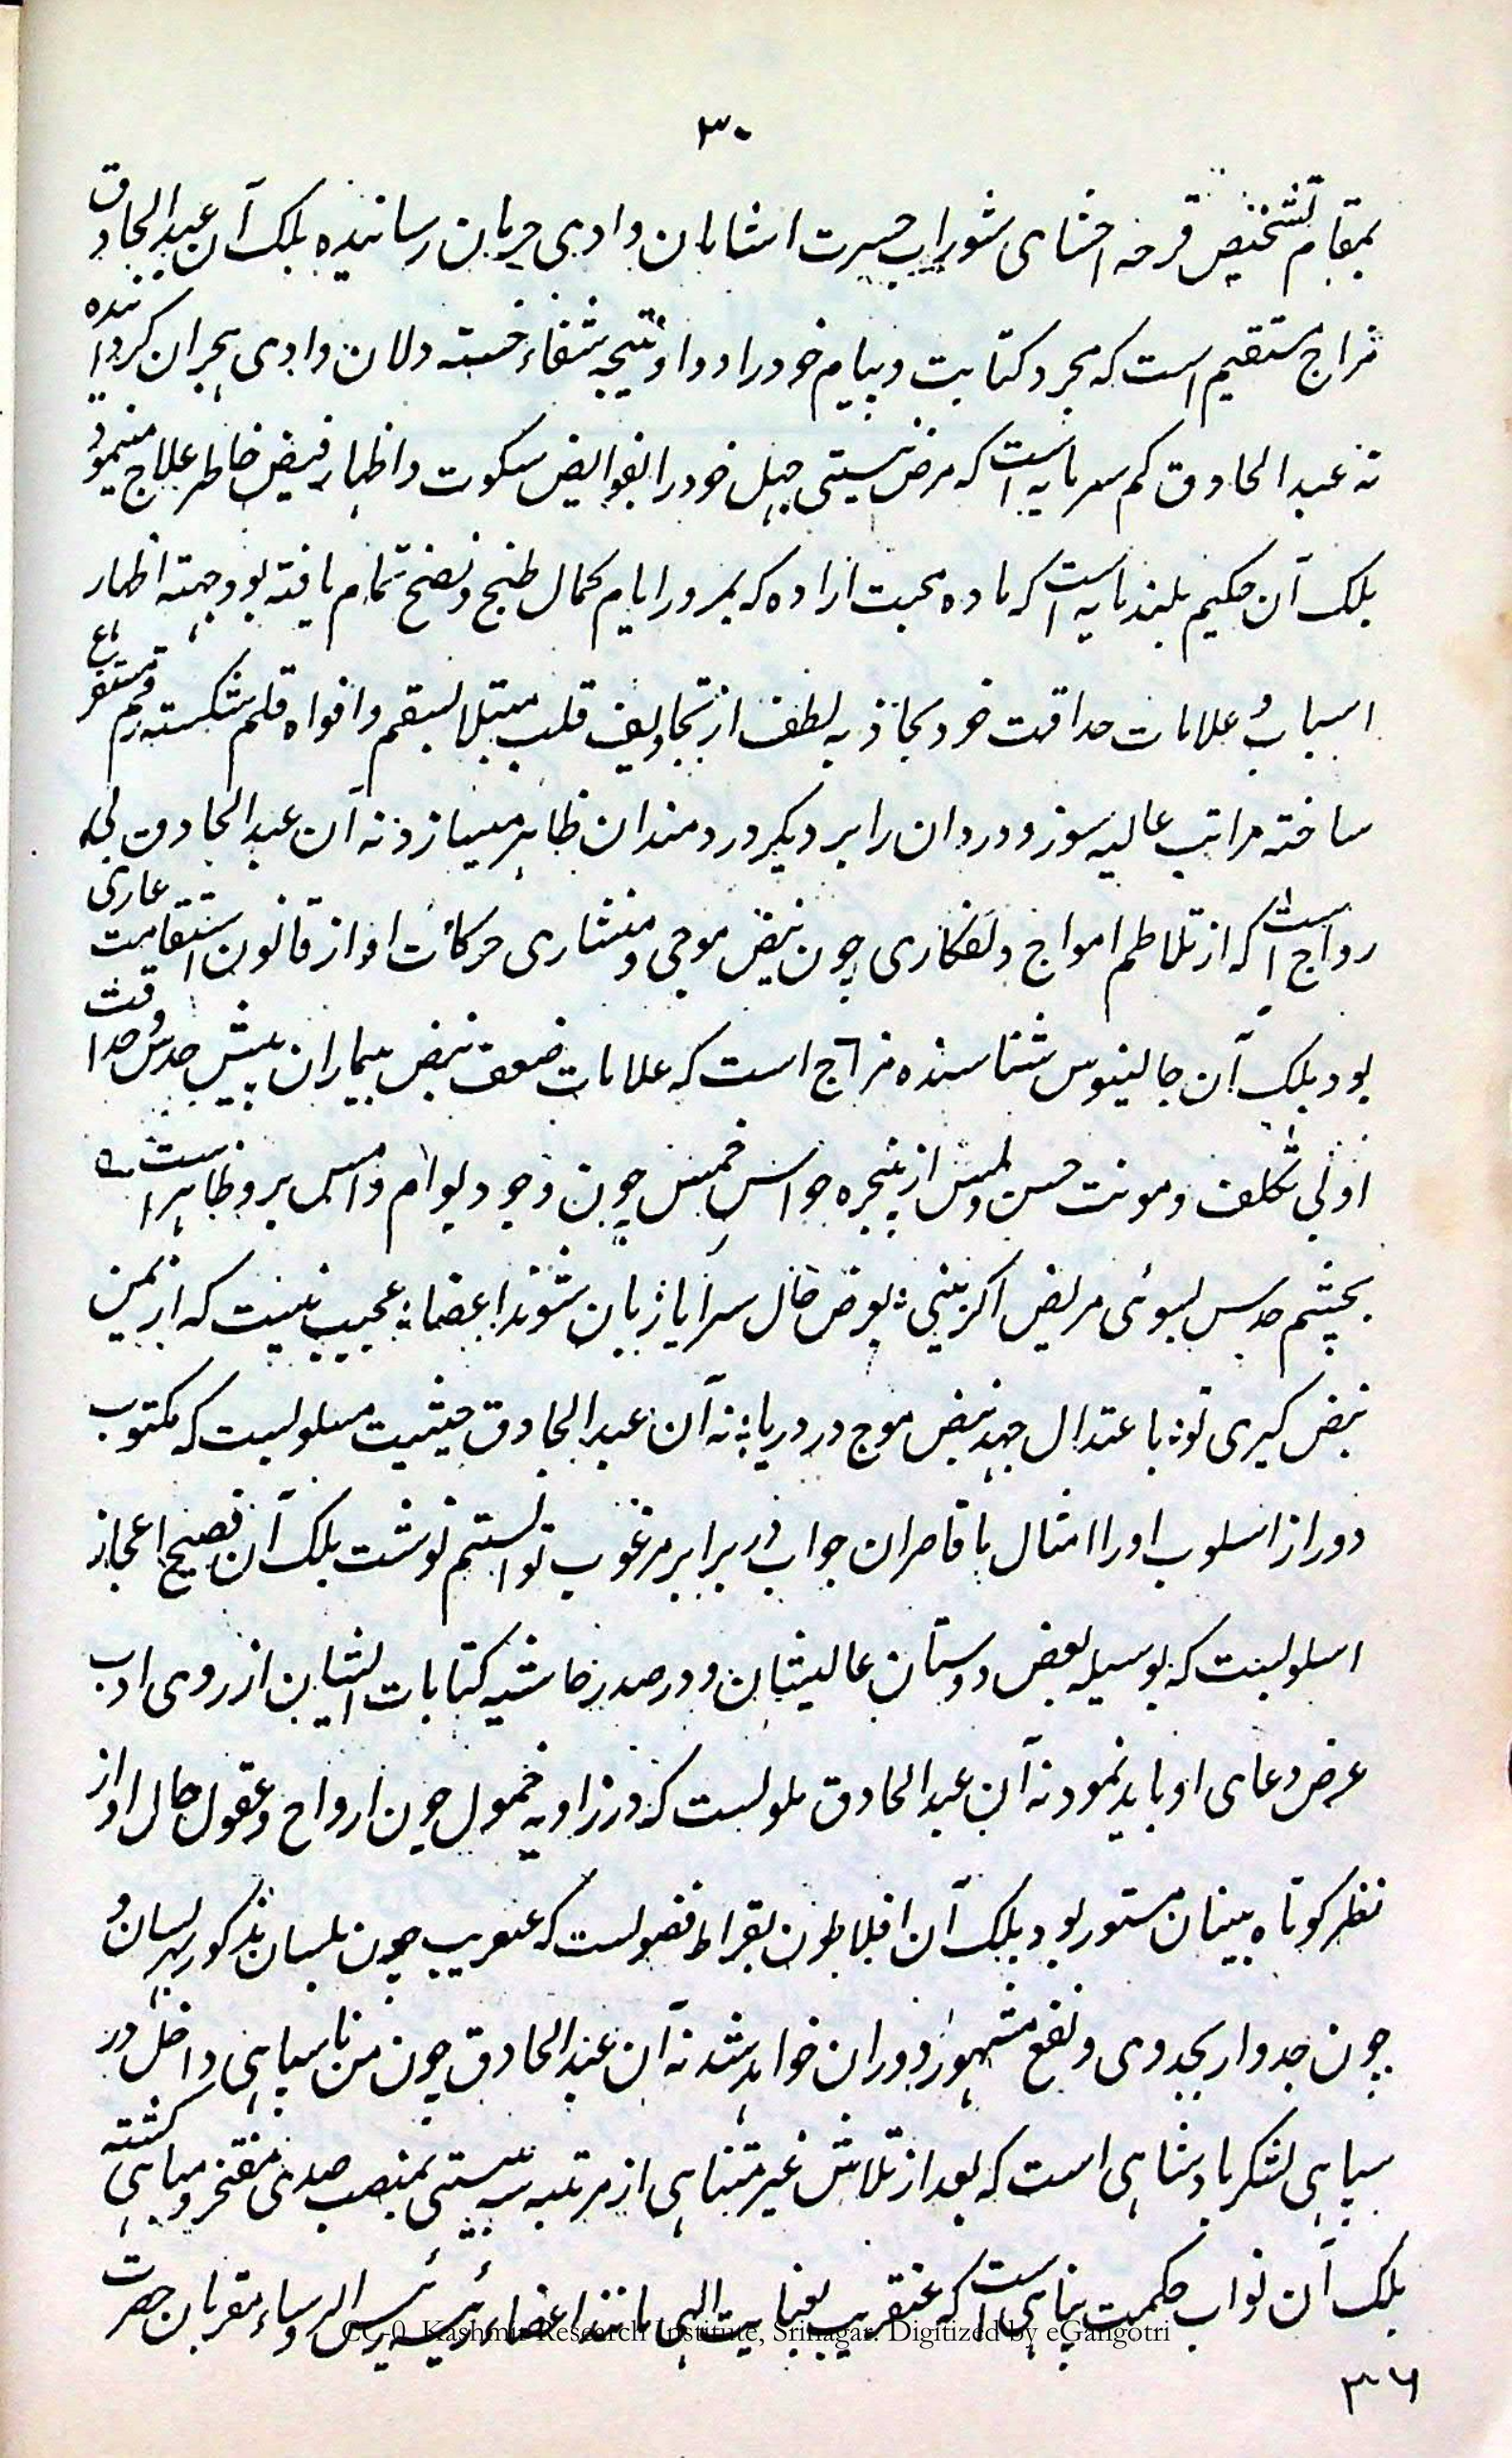 ۳۰
بمقام تشخیص قرحه احشای شوراب حسرت اشامان وادی حرمان رسانیده بلک آن عبد الحاذق
مزاج مستقیم است که بمجرد کتابت و پیام خود را دوا و نتیجه شفاء خسته دلان وادی هجران گردانیده
نه عبد الحاذق کم سرمایه است که مرض نیستی جهل خود را بفوایض سکوت و اظهار فیض خاطر علاج مینمود
بلک آن حکیم بلند مایه است که ماده محبت اراده که بمرور ایام کمال طبخ و نضج تمام یافته بود جهته اظهار
اسباب و علامات حداقت خود بجاذبه لطف از تجاویف قلب مبتلا بسقم و افواه قلم شکسته رقم مستفرغ
ساخته مراتب عالیه سوز و دردان را بر دیگر دردمندان ظاهر میسازد نه آن عبد الحاذق بی
رواج است که از تلاطم امواج دلفکاری چون نبض موجی و منشاری حرکات او از قانون استقامت عاری
بود بلک آن جالینوس شناسنده مزاج است که علامات ضعف نبض بیماران پیش حدس و حداقت
او بی تکلف و مونت حس و لمس از پنجره حواس خمس چون وجود یوام و امس برو ظاهر است ه
بچشم حدس بسوئی مریض اگر بینی ؛ بعرض حال سراپا زبان شوند اعضا ؛ عجیب نیست که از یمن
نبض گیری تو ؛ باعتدال جهد نبض موج در دریا ؛ نه آن عبد الحاذق حیثیت مسلوبست که مکتوب
دور از اسلوب او را امثال ما قاصران جواب در برابر مرغوب توانستم نوشت بلک آن فصیح اعجاز
اسلوبست که بوسیله بعض دوستان عالیشان و در صدر حاشیه کتابات ایشان از روی ادب
عرض دعای او باید نمود نه آن عبد الحاذق ملولست که در زاویه خمول چون ارواح و عقول حال او از
نظر کوتاه بینان مستور بود بلک آن افلاطون بقراط فضولست که عنقریب چون بلسان مذکور هر لسان و
چون جدوار بجدوی و نفع مشهور دوران خواهد شد نه آن عبد الحاذق چون من نا سپاهی داخل در
سپاهی لشکر بادشاهی است که بعد از تلاش غیر متناهی از مرتبه سه بیستی بمنصب صدی مفتخر و مباهی گشته
بلک آن نواب حکمت پناهی است که عنقریب بعنایت الهی مانند اعضاء رئیسه رئیس الروساء مقربان حضرت
CC-0. Kashmir Research Institute, Srinagar. Digitized by eGangotri
۳۶